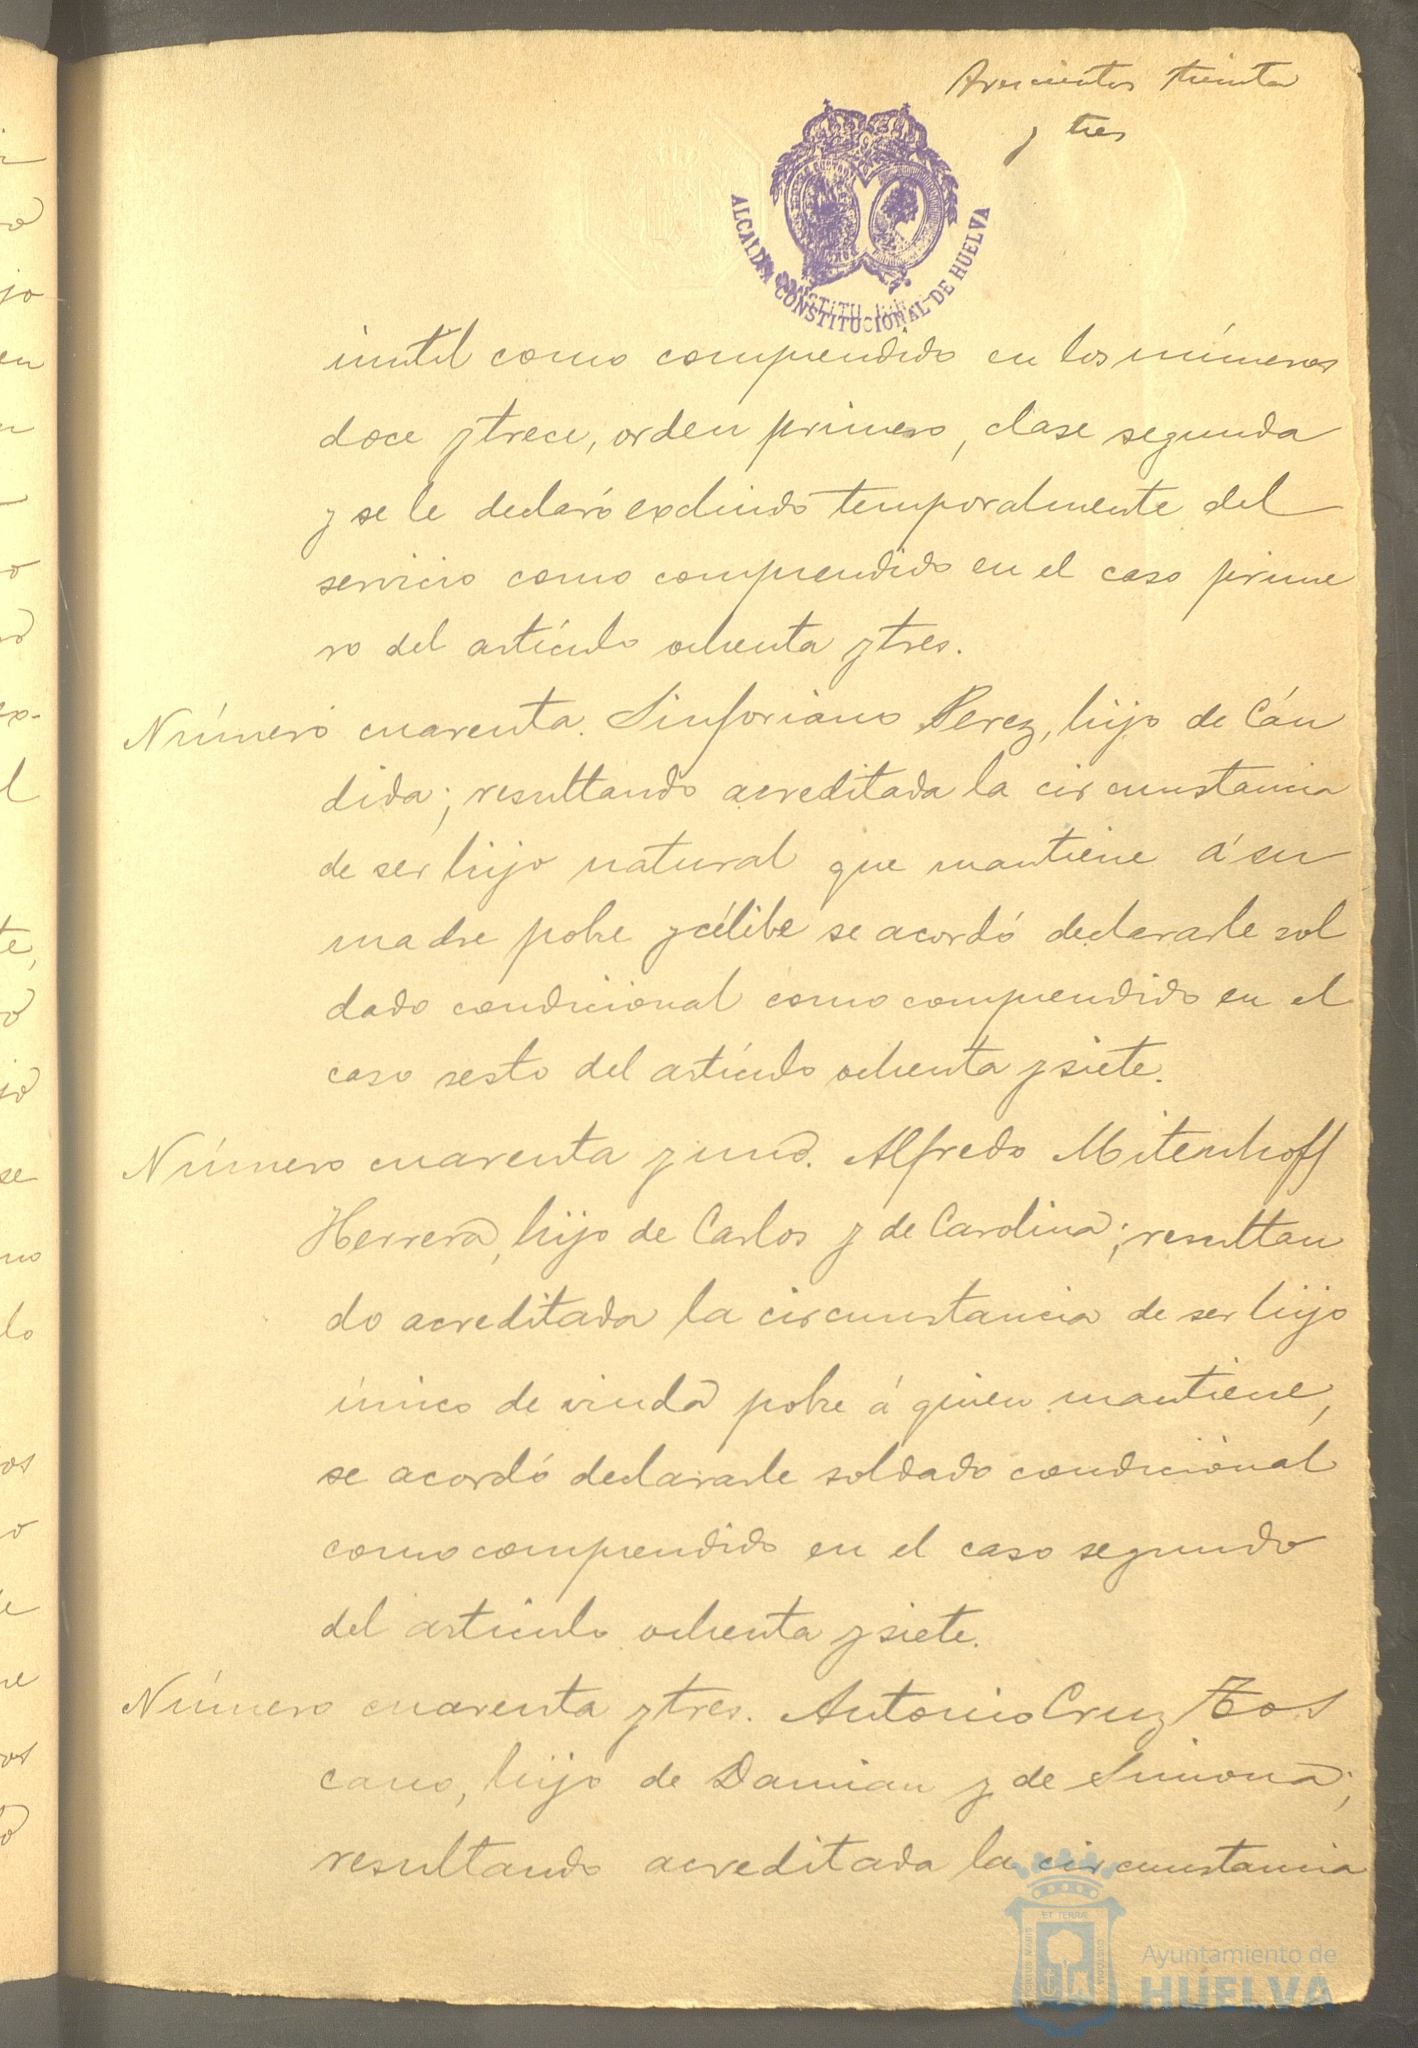 Trescientos treinta
y tres
ALCALDIA CONSTITUCIONAL DE HUELVA
inutil como comprendido en los números
doce y trece, orden primero, clase segunda
y se le declaró excluido temporalmente del
servicio como comprendido en el caso prime
ro del artículo ochenta y tres.
Número cuarenta. Sinforiano Perez, hijo de Cán
dida; resultando acreditada la circunstancia
de ser hijo natural que mantiene á su
madre pobre y célibe se acordó declararle sol
dado condicional como comprendido en el
caso sesto del artículo ochenta y siete.
Número cuarenta y uno. Alfredo Mitenhoff
Herrera, hijo de Carlos y de Carolina; resultan
do acreditada la circunstancia de ser hijo
único de viuda pobre á quien mantiene,
se acordó declararle soldado condicional
como comprendido en el caso segundo
del artículo ochenta y siete.
Número cuarenta y tres. Antonio Cruz Tos
cano, hijo de Damian y de Simona;
resultando acreditada la circunstancia
Ayuntamiento de
HUELVA